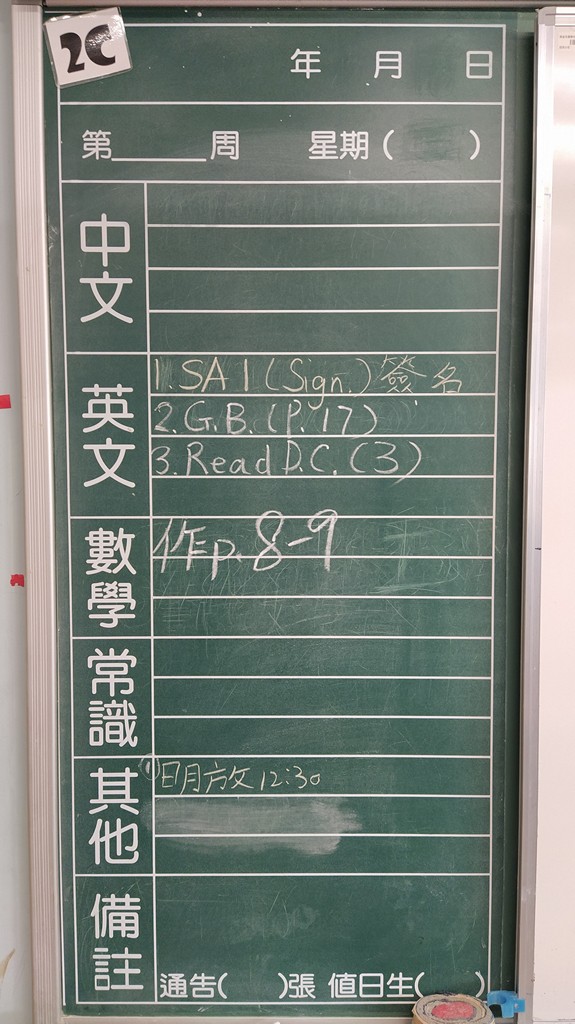 2C
年 月 日
第______周 星期( )
中文
英文
1. SA 1 (Sign.) 簽名
2. G.B. (P. 17)
3. Read D.C. (3)
數學
作p. 8-9
常識
其他
① 日月放 12:30
備註
通告( )張 值日生( )